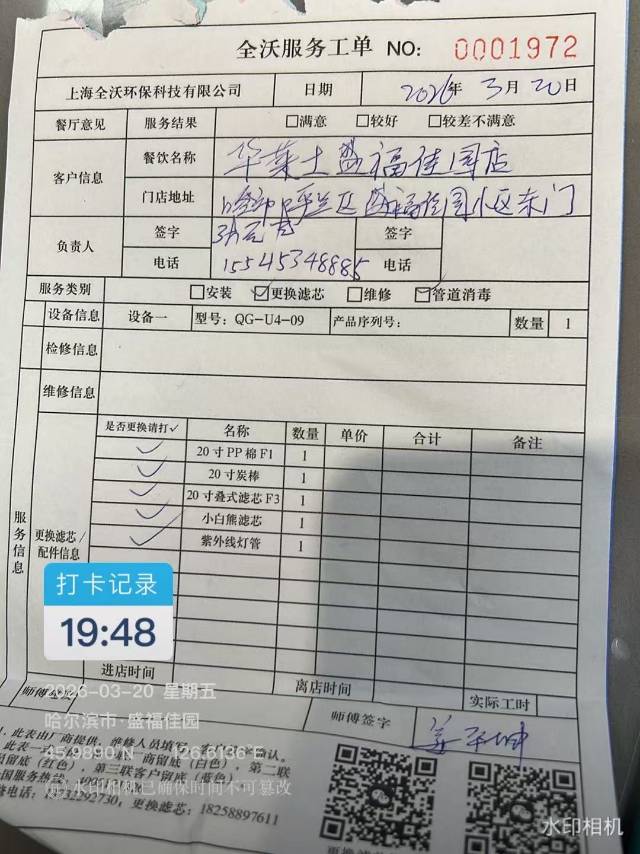 全沃服务工单 NO: 0001972
上海全沃环保科技有限公司 日期 2026年 3月 20日
餐厅意见 服务结果 □满意 □较好 □较差不满意
客户信息 餐饮名称 华莱士盛福佳园店
门店地址 盛福佳园小区东门
负责人 签字 签字
电话 15545348885 电话
服务类别 □安装 ☑更换滤芯 □维修 ☑管道消毒
设备信息 设备一 型号: QG-U4-09 产品序列号: 数量 1
检修信息
维修信息
服务信息
更换滤芯/配件信息
是否更换请打✓ 名称 数量 单价 合计 备注
✓ 20寸PP棉F1 1
✓ 20寸炭棒 1
✓ 20寸叠式滤芯F3 1
✓ 小白熊滤芯 1
✓ 紫外线灯管 1
打卡记录
19:48
进店时间 离店时间 实际工时
师傅签字
2026-03-20 星期五
哈尔滨市·盛福佳园
水印相机已确保时间不可篡改
更换滤芯: 18258897611
水印相机